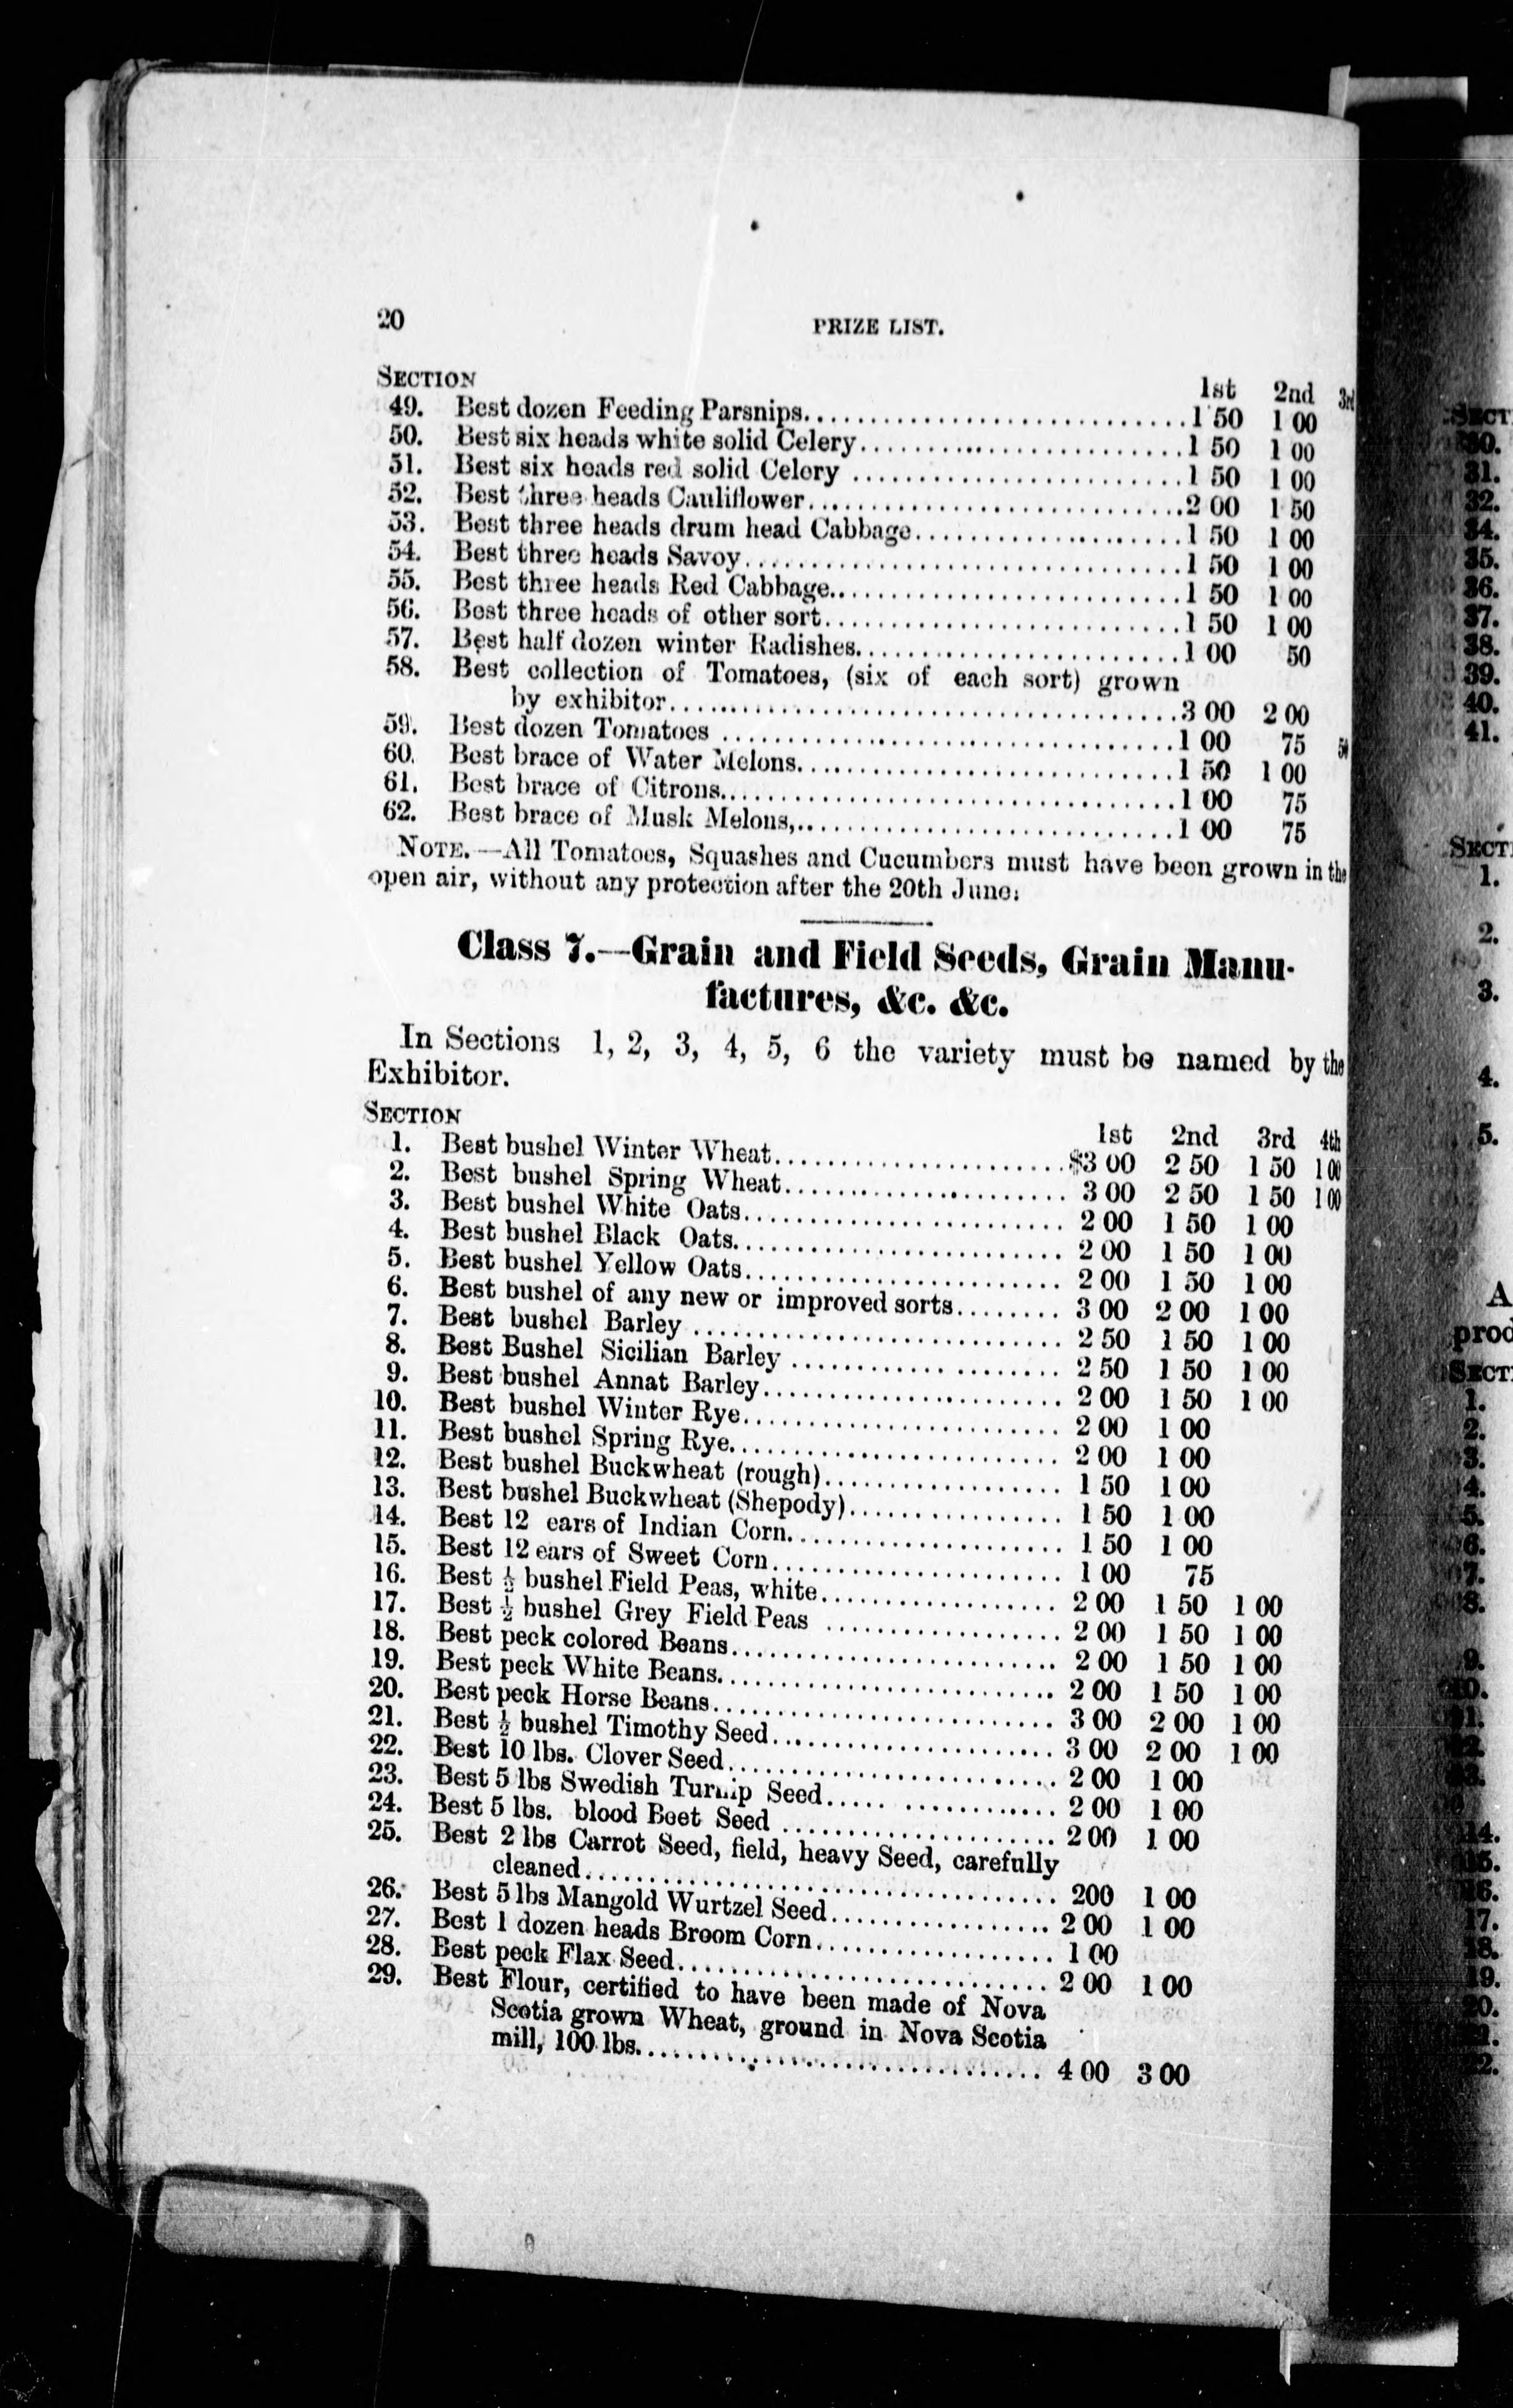 20 PRIZE LIST.
SECTION 1st 2nd 3rd
49. Best dozen Feeding Parsnips.......1 50 1 00
50. Best six heads white solid Celery.......1 50 1 00
51. Best six heads red solid Celery .......1 50 1 00
52. Best three heads Cauliflower.......2 00 1 50
53. Best three heads drum head Cabbage.......1 50 1 00
54. Best three heads Savoy.......1 50 1 00
55. Best three heads Red Cabbage.......1 50 1 00
56. Best three heads of other sort.......1 50 1 00
57. Best half dozen winter Radishes.......1 00 50
58. Best collection of Tomatoes, (six of each sort) grown
by exhibitor.......3 00 2 00
59. Best dozen Tomatoes .......1 00 75 50
60. Best brace of Water Melons.......1 50 1 00
61. Best brace of Citrons.......1 00 75
62. Best brace of Musk Melons,.......1 00 75
NOTE.—All Tomatoes, Squashes and Cucumbers must have been grown in the
open air, without any protection after the 20th June.
Class 7.—Grain and Field Seeds, Grain Manu-
factures, &c. &c.
In Sections 1, 2, 3, 4, 5, 6 the variety must be named by the
Exhibitor.
SECTION 1st 2nd 3rd 4th
1. Best bushel Winter Wheat.......$3 00 2 50 1 50 1 00
2. Best bushel Spring Wheat.......3 00 2 50 1 50 1 00
3. Best bushel White Oats.......2 00 1 50 1 00
4. Best bushel Black Oats.......2 00 1 50 1 00
5. Best bushel Yellow Oats.......2 00 1 50 1 00
6. Best bushel of any new or improved sorts.......3 00 2 00 1 00
7. Best bushel Barley .......2 50 1 50 1 00
8. Best Bushel Sicilian Barley .......2 50 1 50 1 00
9. Best bushel Annat Barley.......2 00 1 50 1 00
10. Best bushel Winter Rye.......2 00 1 00
11. Best bushel Spring Rye.......2 00 1 00
12. Best bushel Buckwheat (rough).......1 50 1 00
13. Best bushel Buckwheat (Shepody).......1 50 1 00
14. Best 12 ears of Indian Corn.......1 50 1 00
15. Best 12 ears of Sweet Corn.......1 00 75
16. Best ½ bushel Field Peas, white.......2 00 1 50 1 00
17. Best ½ bushel Grey Field Peas .......2 00 1 50 1 00
18. Best peck colored Beans.......2 00 1 50 1 00
19. Best peck White Beans.......2 00 1 50 1 00
20. Best peck Horse Beans.......3 00 2 00 1 00
21. Best ½ bushel Timothy Seed.......3 00 2 00 1 00
22. Best 10 lbs. Clover Seed.......2 00 1 00
23. Best 5 lbs Swedish Turnip Seed.......2 00 1 00
24. Best 5 lbs. blood Beet Seed .......2 00 1 00
25. Best 2 lbs Carrot Seed, field, heavy Seed, carefully
cleaned.......200 1 00
26. Best 5 lbs Mangold Wurtzel Seed.......2 00 1 00
27. Best 1 dozen heads Broom Corn.......1 00
28. Best peck Flax Seed.......2 00 1 00
29. Best Flour, certified to have been made of Nova
Scotia grown Wheat, ground in Nova Scotia
mill, 100 lbs.......4 00 3 00